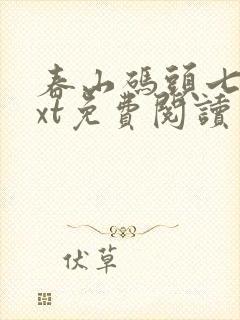 春山碼頭七
xt免費閱讀
伏草